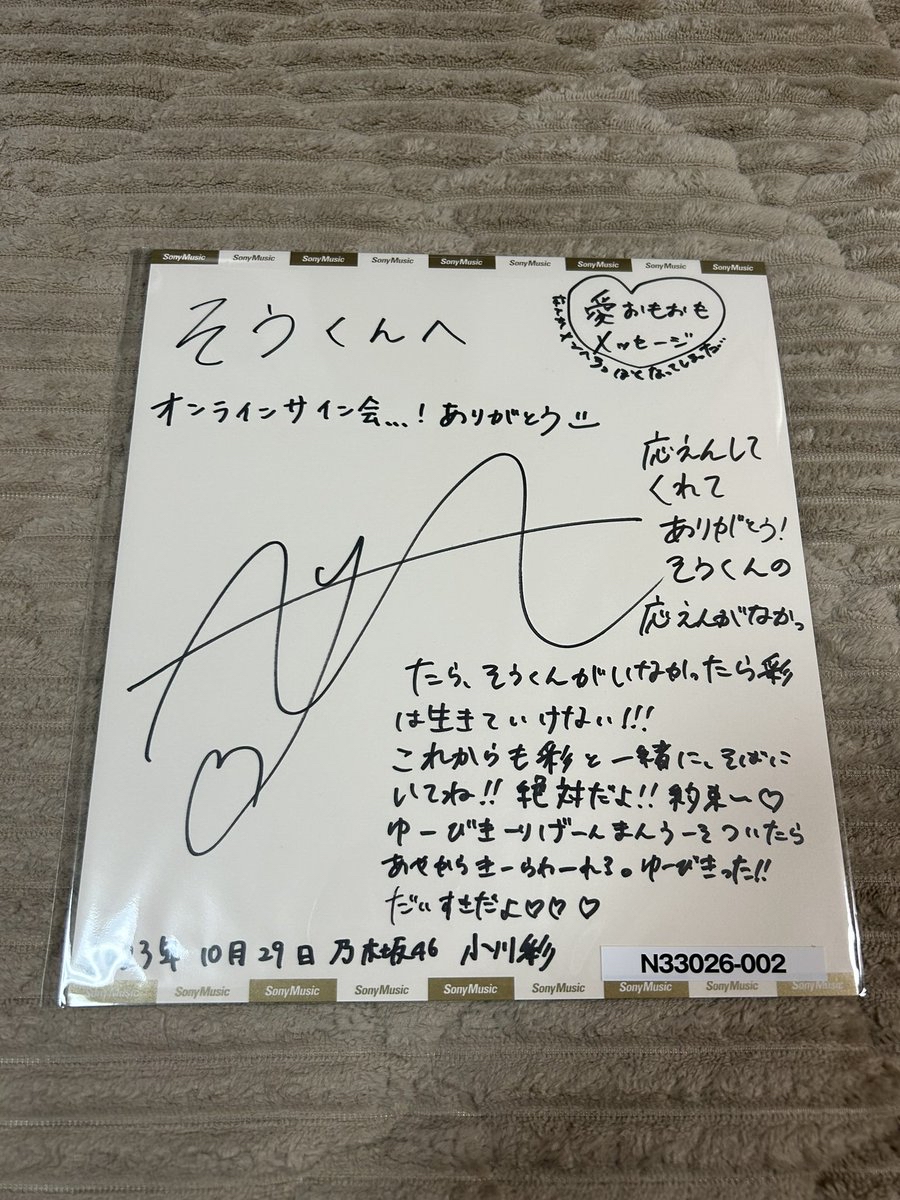 SonyMusic SonyMusic SonyMusic SonyMusic SonyMusic SonyMusic SonyMusic SonyMusic SonyMusic
そうくんへ
愛おもおも
メッセージ
なってしまった...
オンラインサイン会...!ありがとう
応えんして
くれて
ありがとう!
そうくんの
応えんがなかっ
たら、そうくんがいなかったら彩
は生きていけない!!!
これからも彩と一緒に、そばに
いてね!!絶対だよ!!約束〜♡
ゆーびきーりげーんまんうーそついたら
あやからきーらわーれる。ゆーびきった!!
だいすきだよ♡♡♡
AyA
3年10月29日 乃木坂46 小川彩
N33026-002
SonyMusic SonyMusic SonyMusic SonyMusic SonyMusic SonyMusic SonyMusic SonyMusic SonyMusic